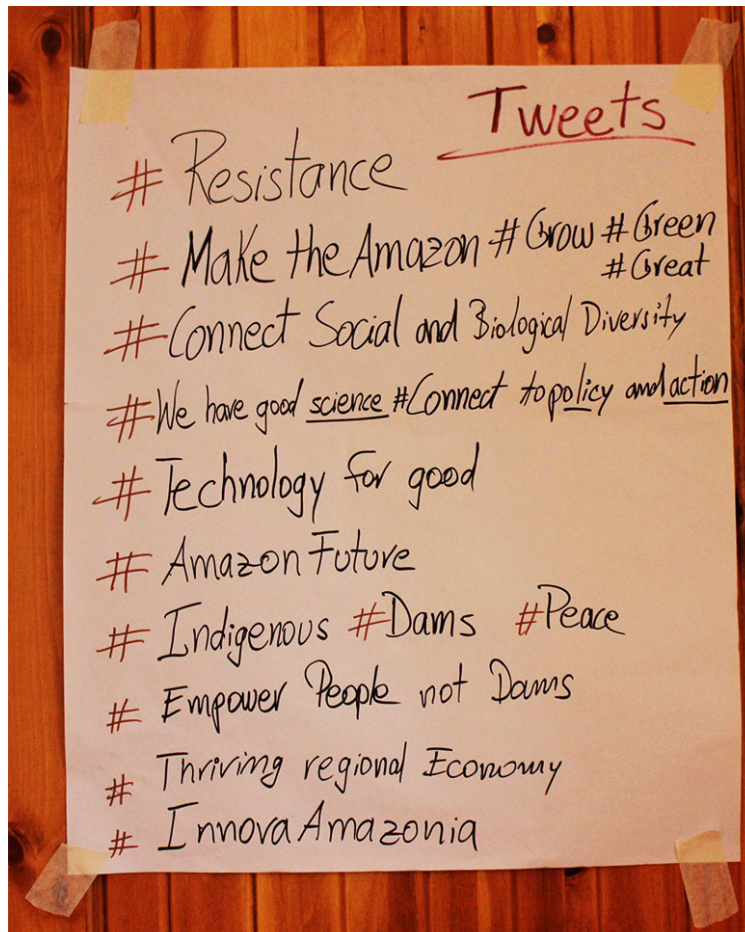 Tweets
# Resistance
# Make the Amazon # Grow # Green
# Great
# Connect Social and Biological Diversity
# We have good science #Connect to policy and action
# Technology for good
# Amazon Future
# Indigenous #Dams #Peace
# Empower People not Dams
# Thriving regional Economy
# InnovaAmazonia